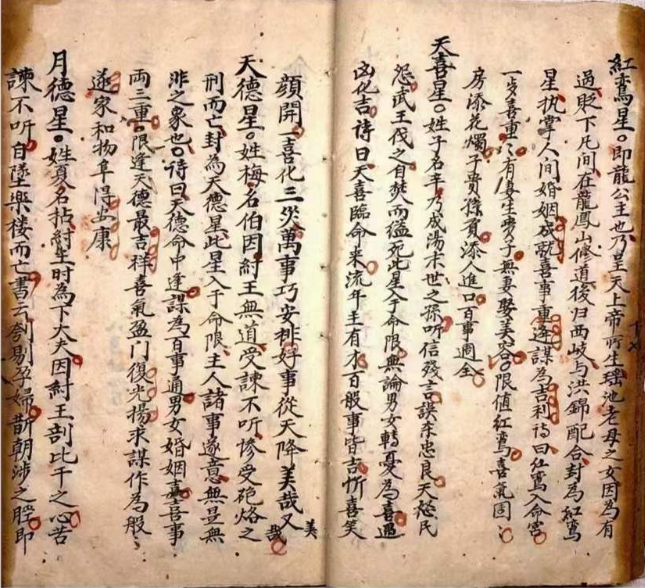 紅鸞星。即龍公主也乃皇天上帝所生瑶池老母之女因為有
過貶下凡間在龍鳳山修道後归西岐与洪錦配合封為紅鸞
星执掌人间婚姻成就喜事重逢謀為吉利詩曰紅鸞入命宮
一步喜重重有妻生贵子無妻娶美容限值紅鸞喜氣固
房添花燭子貴孫賢添人進口百事週全
天喜星。姓子名辛乃成湯末世之孫听信残言誤害忠良天愁民
怨武王伐之自焚而死此星入于命限無論男女轉憂為喜遇
凶化吉詩曰天喜臨命来流年主有才百般事皆吉忻喜笑
顔開一喜化三災萬事巧安排好事從天降美哉又美哉
天德星。姓梅名伯因紂王無道受諫不听惨受砲烙之
刑而亡封為天德星此星入于命限主人諸事遂意無是無
非之象也詩曰天德命中逢謀為百事通男女婚姻喜喜事
兩三重限逢天德最吉祥喜氣盈门復光揚求謀作為般
遂家和物阜得安康
月德星。姓夏名招紂王时為下大夫因紂王剖比干之心苦
諫不听自墜樂楼而亡書云刳剔孕婦斮朝涉之脛即